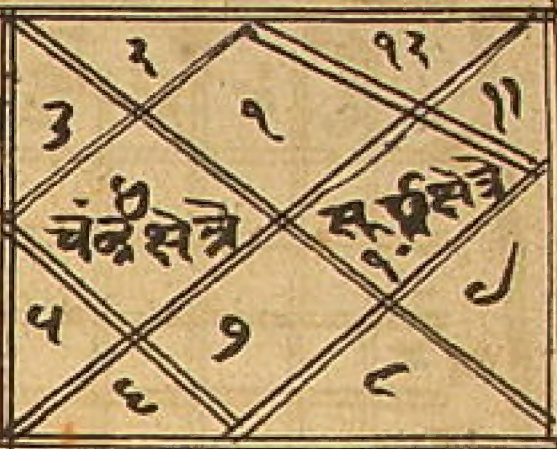 २
१२
३
१
११
४
चंद्रक्षेत्रे
सूर्यक्षेत्रे
१०
५
७
९
६
८